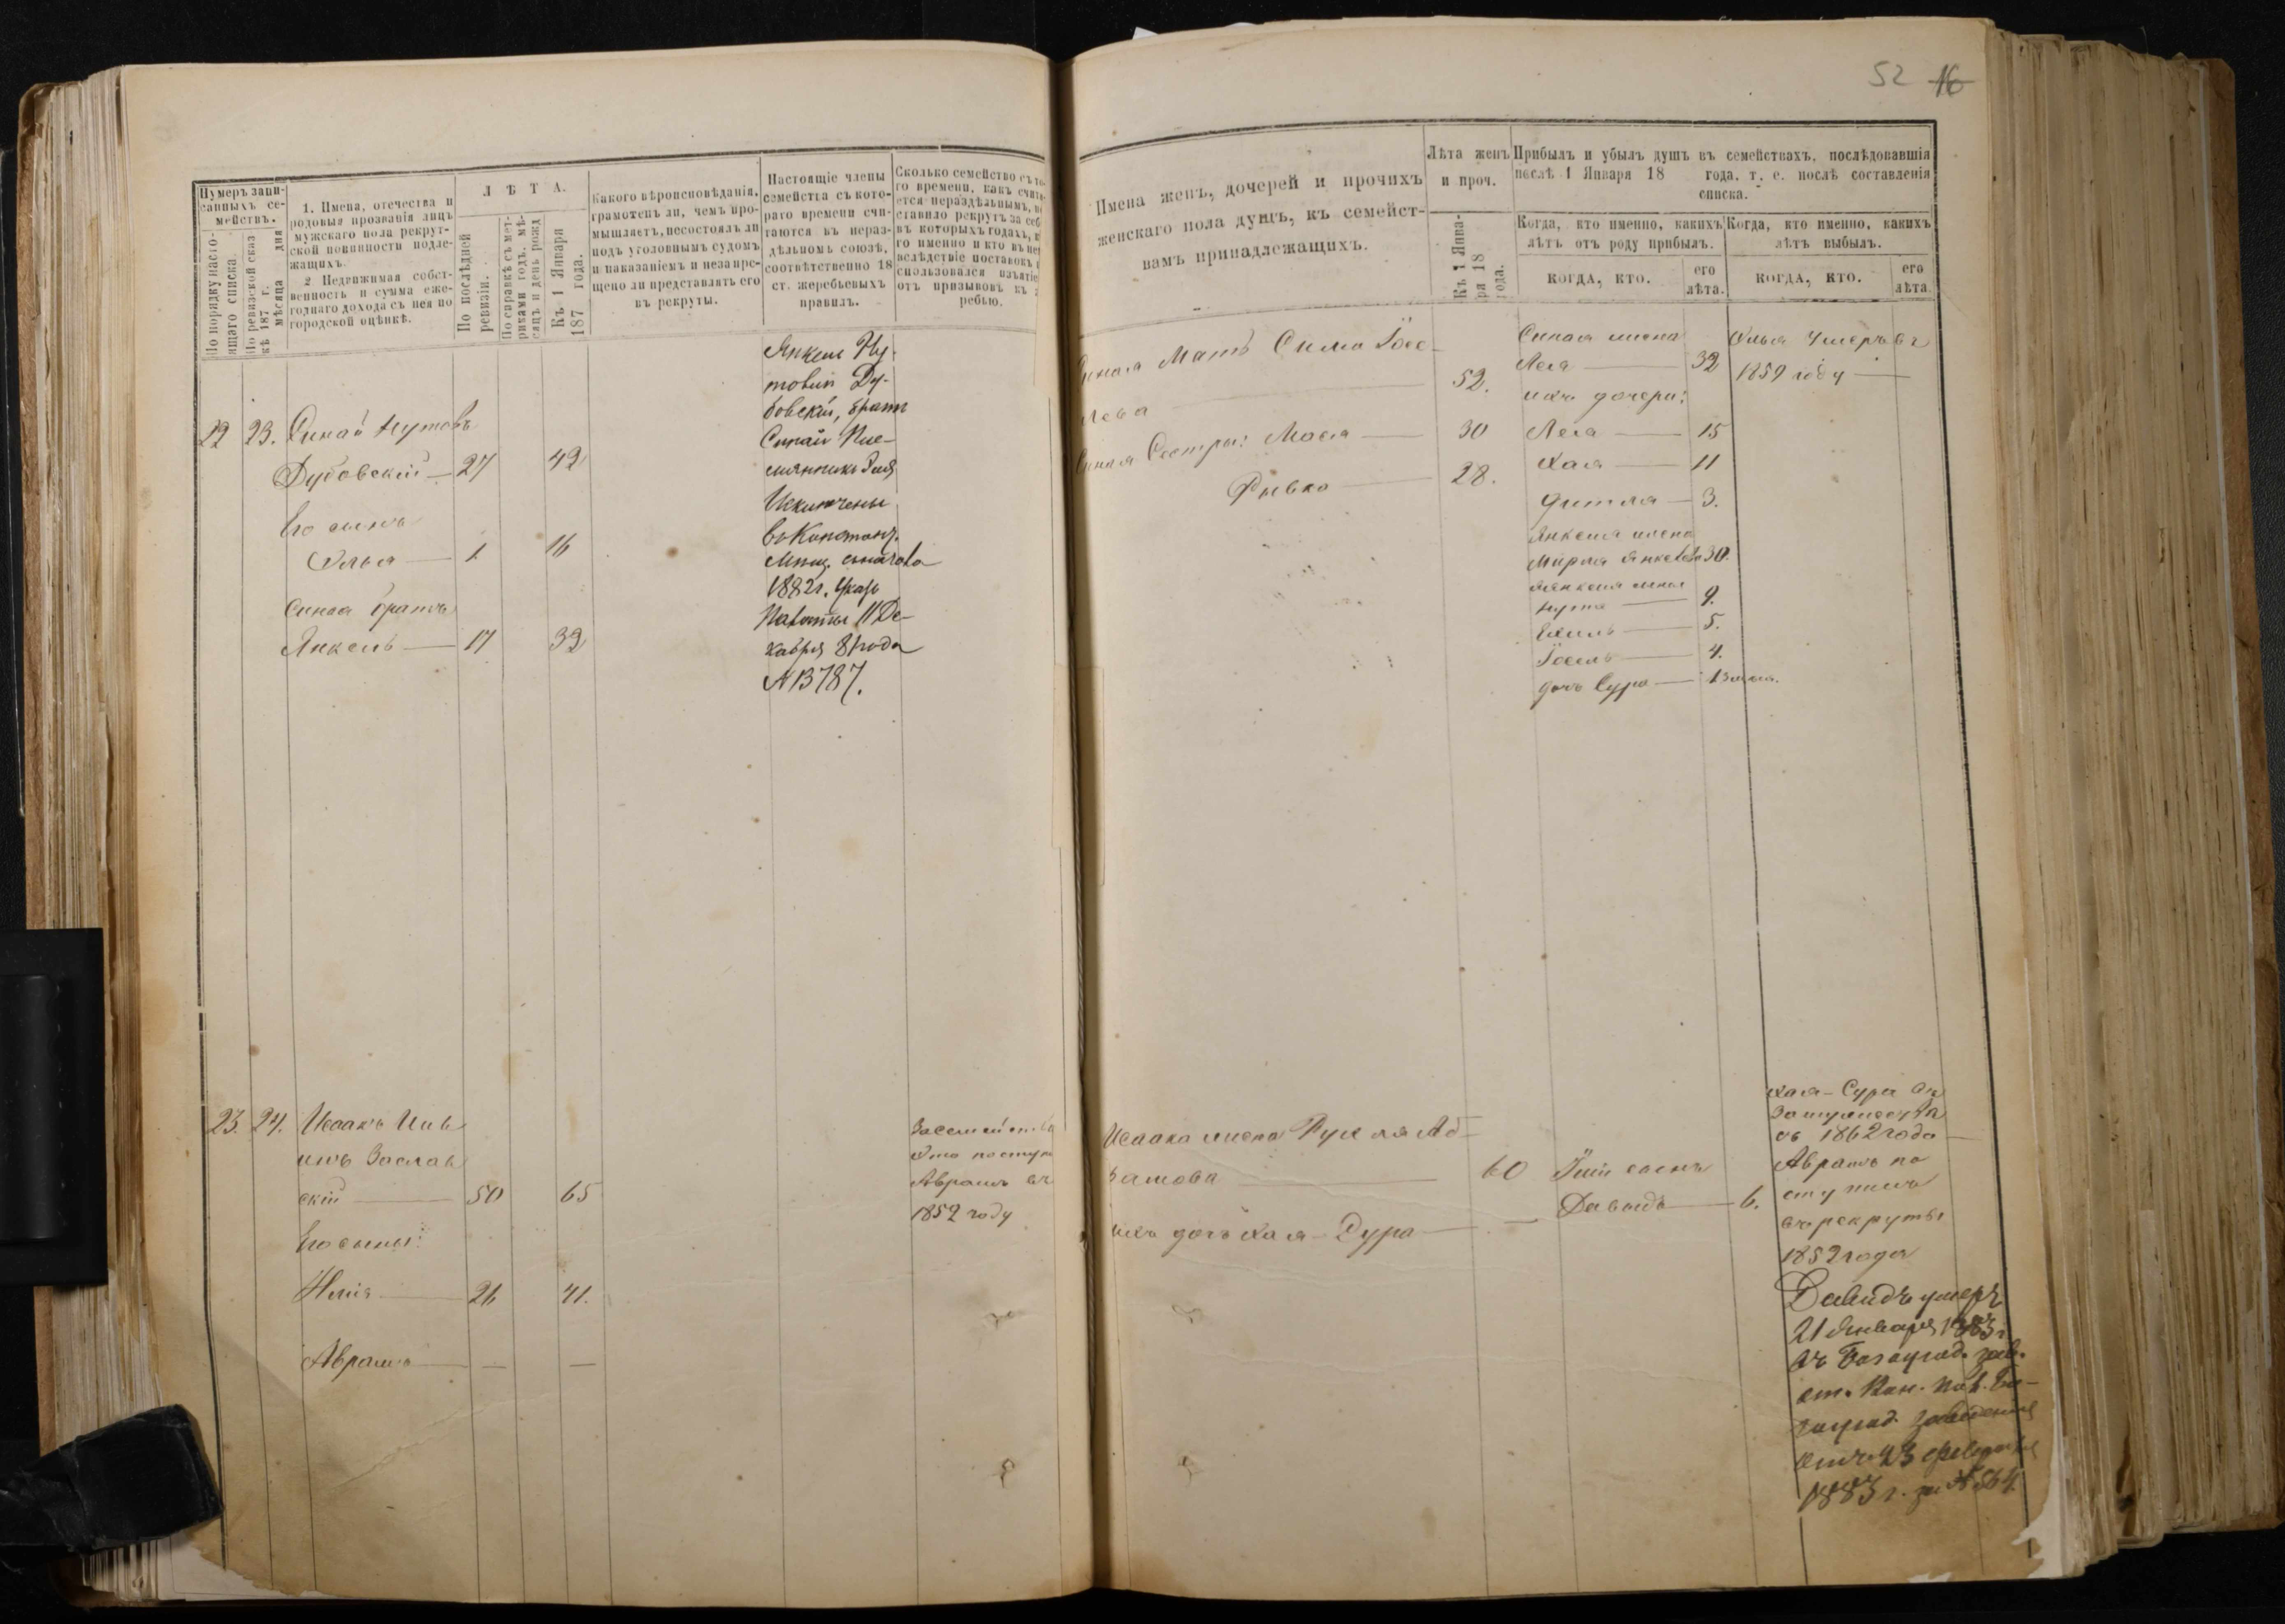 52 16
Нумеръ запи-
санныхъ се-
мействъ.
По порядку насто-
ящаго списка.
По ревизской сказ
кѣ 187 г.
мѣсяца дня
1. Имена, отечества и
родовыя прозванія лицъ
мужскаго пола рекрут-
ской повинности подле-
жащихъ.
2. Недвижимая собст-
венность и сумма еже-
годнаго дохода съ нея по
городской оцѣнкѣ.
Л Ѣ Т А.
По послѣдней
ревизіи.
По справкѣ съ мет-
риками годъ, мѣ-
сяцъ и день рожд
Къ 1 Января
187 года.
Какого вѣроисповѣданія,
грамотенъ ли, чемъ про-
мышляетъ, несостоялъ ли
подъ уголовнымъ судомъ
и наказаніемъ и незапре-
щено ли представлять его
въ рекруты.
Настоящіе члены
семейства съ кото-
раго времени счи-
таются въ нераз-
дѣльномъ союзѣ,
соотвѣтственно 18
ст. жеребьевыхъ
правилъ.
Сколько семейство съ то
го времени, какъ счит
ется нераздѣльнымъ,
ставило рекрутъ за себ
въ которыхъ годахъ,
го именно и кто въ не
вслѣдствіе поставокъ
спользовался изъятіе
отъ призывовъ къ
ребью.
22 23. Синай Нутовъ
Дубовскій — 27 42
Его сынъ
Эльия — 1 16
Синая братъ
Янкель — 17 32
Янкель Ну-
товичъ Ду-
бовскій, братъ
Синай Пле-
мянникъ
Исключены
въ Константъ.
Мѣщ. сначала
1882 г. Указъ
Палаты 11 Де-
кабря 81 года
№ 13787.
23. 24. Исаакъ
Заслав
скій — 50 65
Его сыны:
21 41.
Аврамъ — — —
За семейство
это поступи
Аврамъ въ
1852 году
Имена женъ, дочерей и прочихъ
женскаго пола душъ, къ семейст-
вамъ принадлежащихъ.
Лѣта женъ
и проч.
Къ 1 Янва-
ря 18
года.
Прибыль и убыль душъ въ семействахъ, послѣдовавшія
послѣ 1 Января 18 года, т. е. послѣ составленія
списка.
Когда, кто именно, какихъ
лѣтъ отъ роду прибылъ.
Когда, кто именно, какихъ
лѣтъ выбылъ.
КОГДА, КТО.
его
лѣта.
КОГДА, КТО.
его
лѣта.
Синая Мать Сима Iосе-
лева — 52.
Синая Сестры: Мася — 30
Рывка — 28.
Синая жена
Лея — 32
ихъ дочери:
Лея — 15
Хая — 11
Фитля — 3.
Янкеля жена
Мирля Янкелева 30.
Янкеля сыны
Нута — 9.
5.
Iосель — 4.
дочь Сура — 1
Эльия умеръ въ
1859 году —
Исаака жена Рухля Аб-
рамова — 60
ихъ дочь Хая-Сура —
сынъ
Давыдъ — 6.
Хая-Сура въ
замужествѣ
съ 1862 года —
Аврамъ по
ступилъ
въ рекруты
1852 года
Давидъ умеръ
21 Января 1883 г.
23 февраля
1883 г. за № 564.